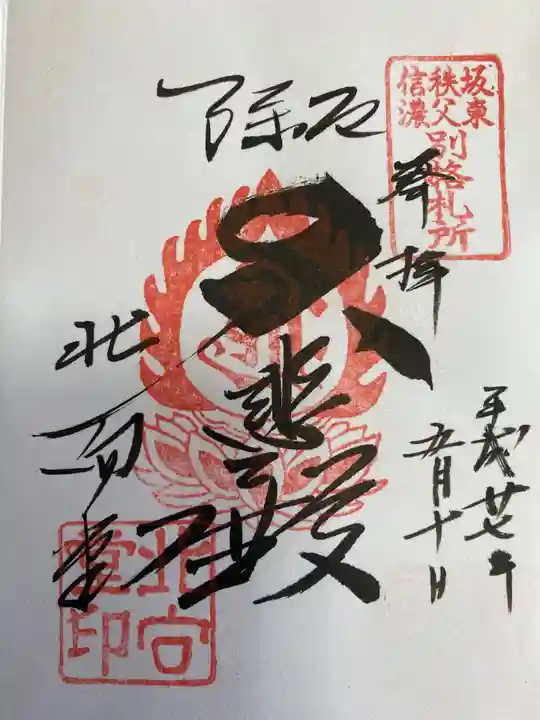 坂東
秩父
信濃
別格札所
奉拝
厄除
大悲殿
北向堂
平成廿七年
五月十日
北向
堂印